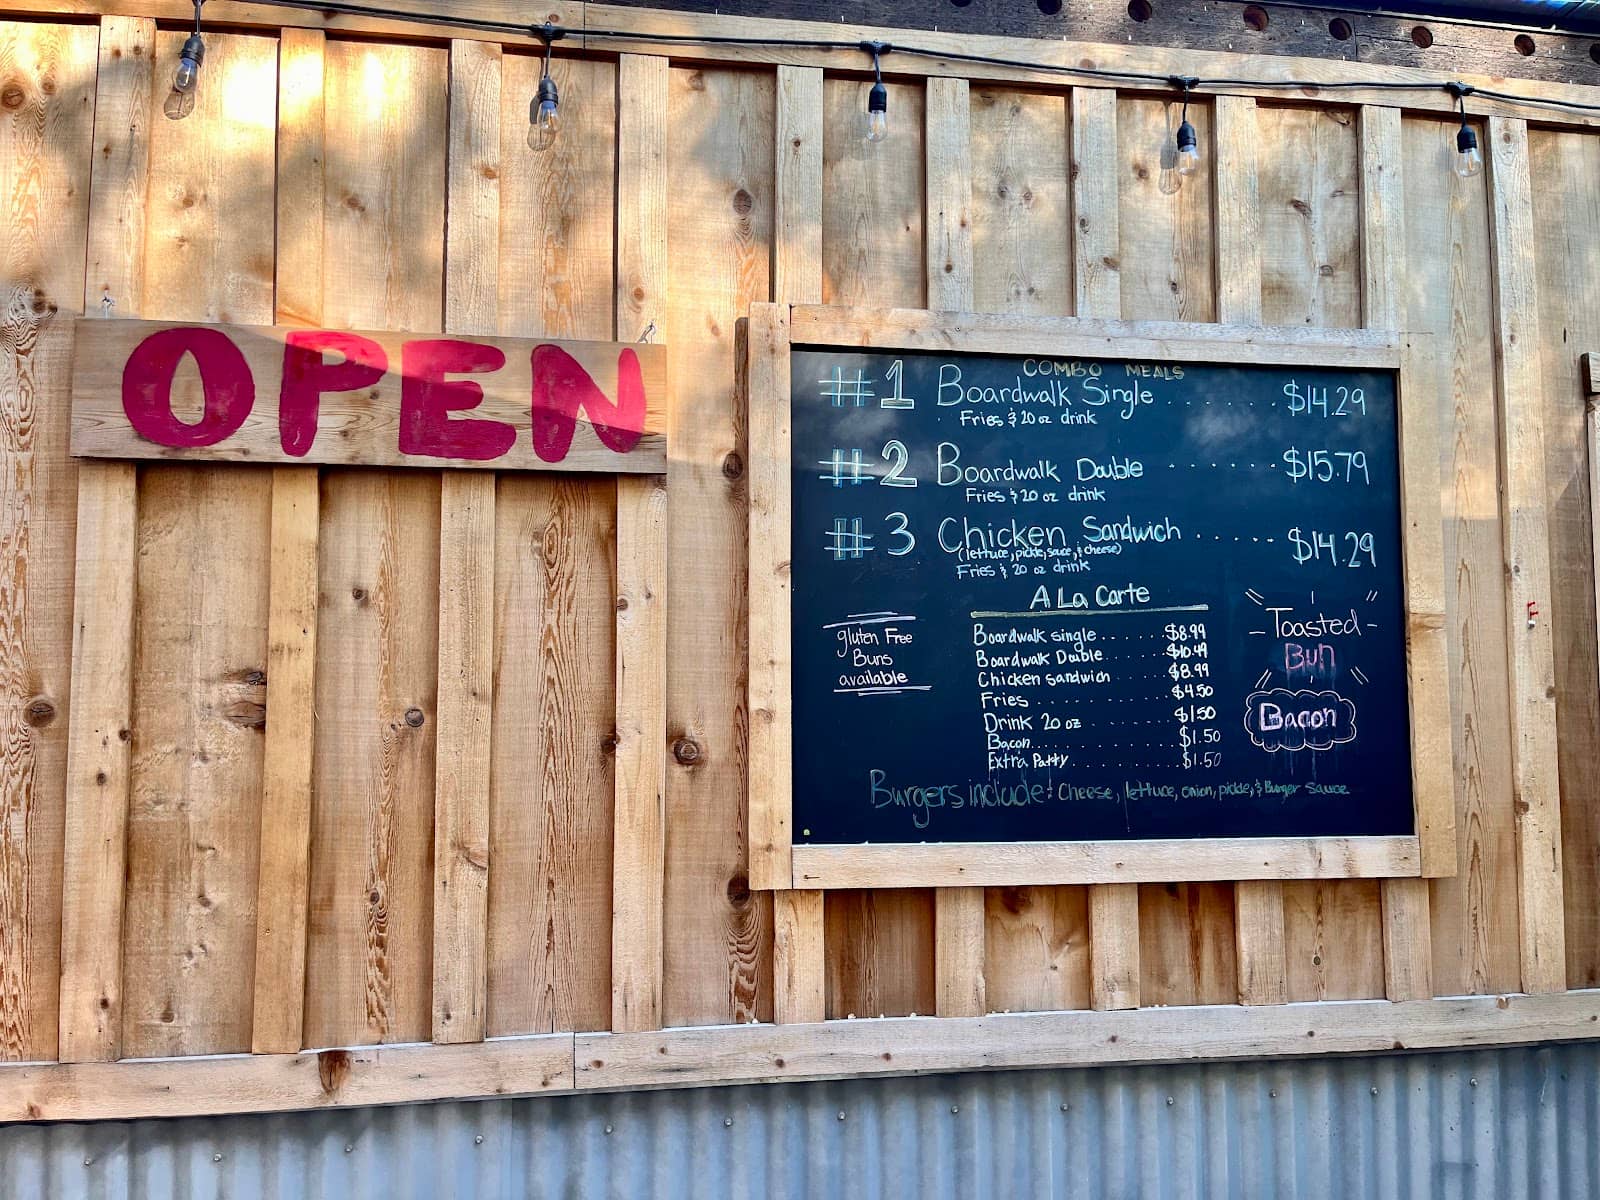 OPEN
COMBO MEALS
#1 Boardwalk Single . . . . . . . $14.29
Fries & 20 oz drink
#2 Boardwalk Double . . . . . . . $15.79
Fries & 20 oz drink
#3 Chicken Sandwich . . . . . . $14.29
(lettuce, pickle, sauce, & cheese)
Fries & 20 oz drink
A La Carte
Boardwalk single . . . . . . $8.99
Boardwalk Double . . . . . . $10.49
Chicken sandwich . . . . . . $8.99
Fries . . . . . . . . . . . . $4.50
Drink 20 oz . . . . . . . . $1.50
Bacon . . . . . . . . . . . . $1.50
Extra Patty . . . . . . . . . . $1.50
gluten Free
Buns
available
- Toasted -
Bun
Bacon
Burgers include: Cheese, lettuce, onion, pickle, & Burger sauce